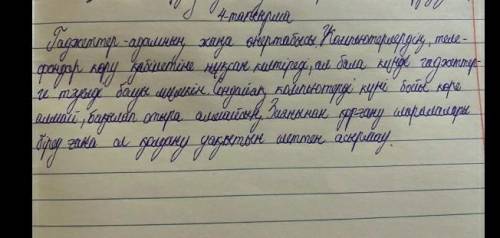 4-тапсырма
Гаджеттер - адамның жаңа өнертабысы. Компьютерлердің, теле-
фондар көру қабілетіне нұқсан келтіреді, ал бала күнде гаджеттер-
ге тәуелді болуы мүмкін. Сондайақ, компьютерді күні бойы көре
алмай, бақылап отыра алмайсың. Зиянынан қорғану шаралары
біреу ғана ол қолдану уақытын шектен асырмау.